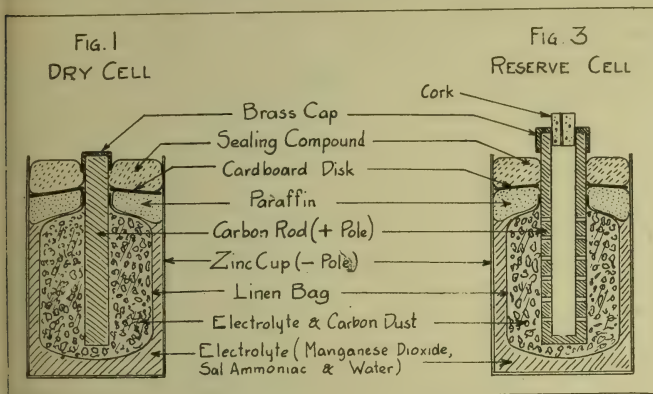 FIG. 1
DRY CELL
FIG. 3
RESERVE CELL
Cork
Brass Cap
Sealing Compound
Cardboard Disk
Paraffin
Carbon Rod (+ Pole)
Zinc Cup (- Pole)
Linen Bag
Electrolyte & Carbon Dust
Electrolyte (Manganese Dioxide,
Sal Ammoniac & Water)